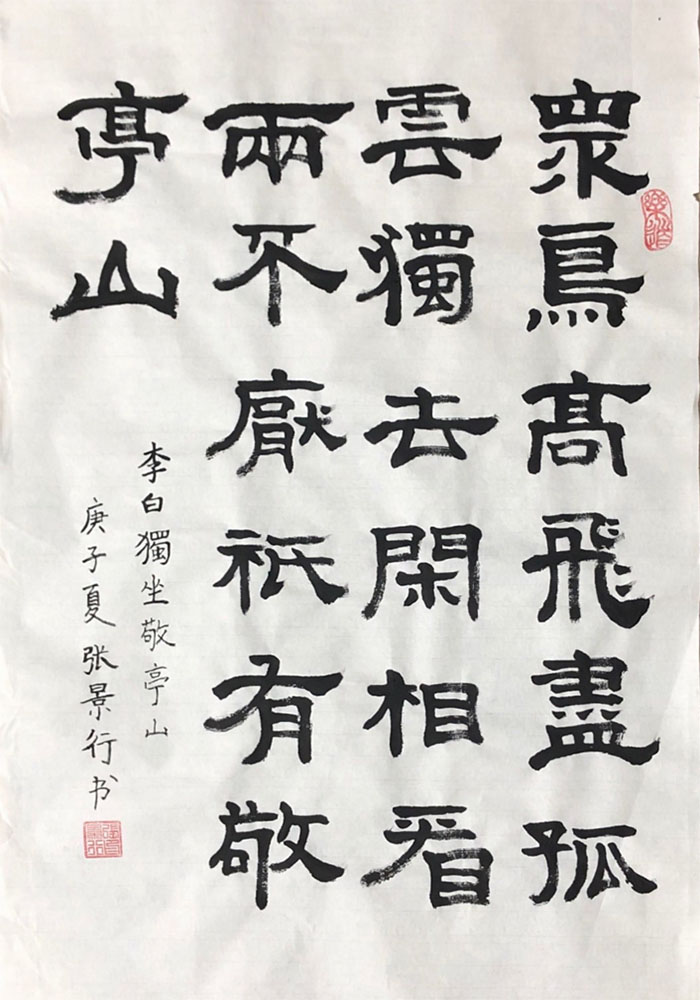 眾鳥高飛盡孤
雲獨去閑相看
兩不厭祇有敬
亭山
李白獨坐敬亭山
庚子夏张景行书
樂道